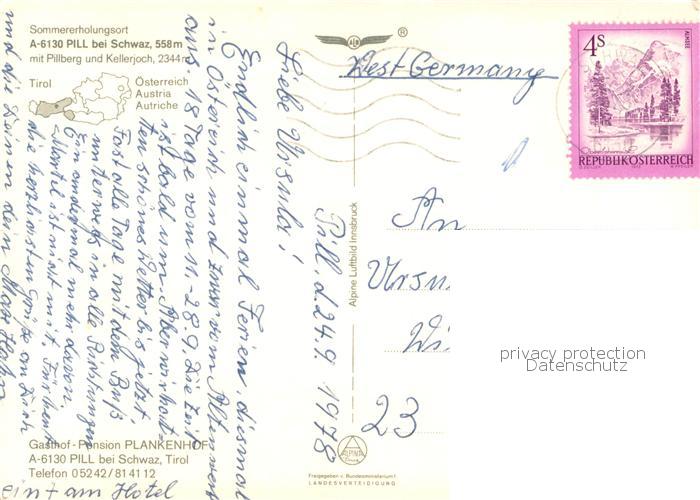 Sommererholungsort
A-6130 PILL bei Schwaz, 558 m
mit Pillberg und Kellerjoch, 2344 m
Tirol
Österreich
Austria
Autriche
Gasthof - Pension PLANKENHOF
A-6130 PILL bei Schwaz, Tirol
Telefon 05242/814112
Pill, d. 24.9. 1978
Liebe Ursula!
Endlich einmal Ferien, diesmal
in Österreich und zwar vom Alten
aus. 18 Tage vom 11.-28.9. Die Zeit
ist bald um. Aber wir hat-
ten schönes Wetter bis jetzt.
Fast alle Tage mit dem Bus
unterwegs in alle Richtungen
Ein andermal mehr davon.
ist nicht mit. Für heute
die herzlichsten Grüße an Dich
und die Deinen dein
am Hotel
ALPINE
®
Alpine Luftbild Innsbruck
ALPINA
Freigegeben v. Bundesministerium f.
LANDESVERTEIDIGUNG
West Germany
4 S
ALMSEE
REPUBLIK ÖSTERREICH
An
Ursu
Wi
23
privacy protection
Datenschutz